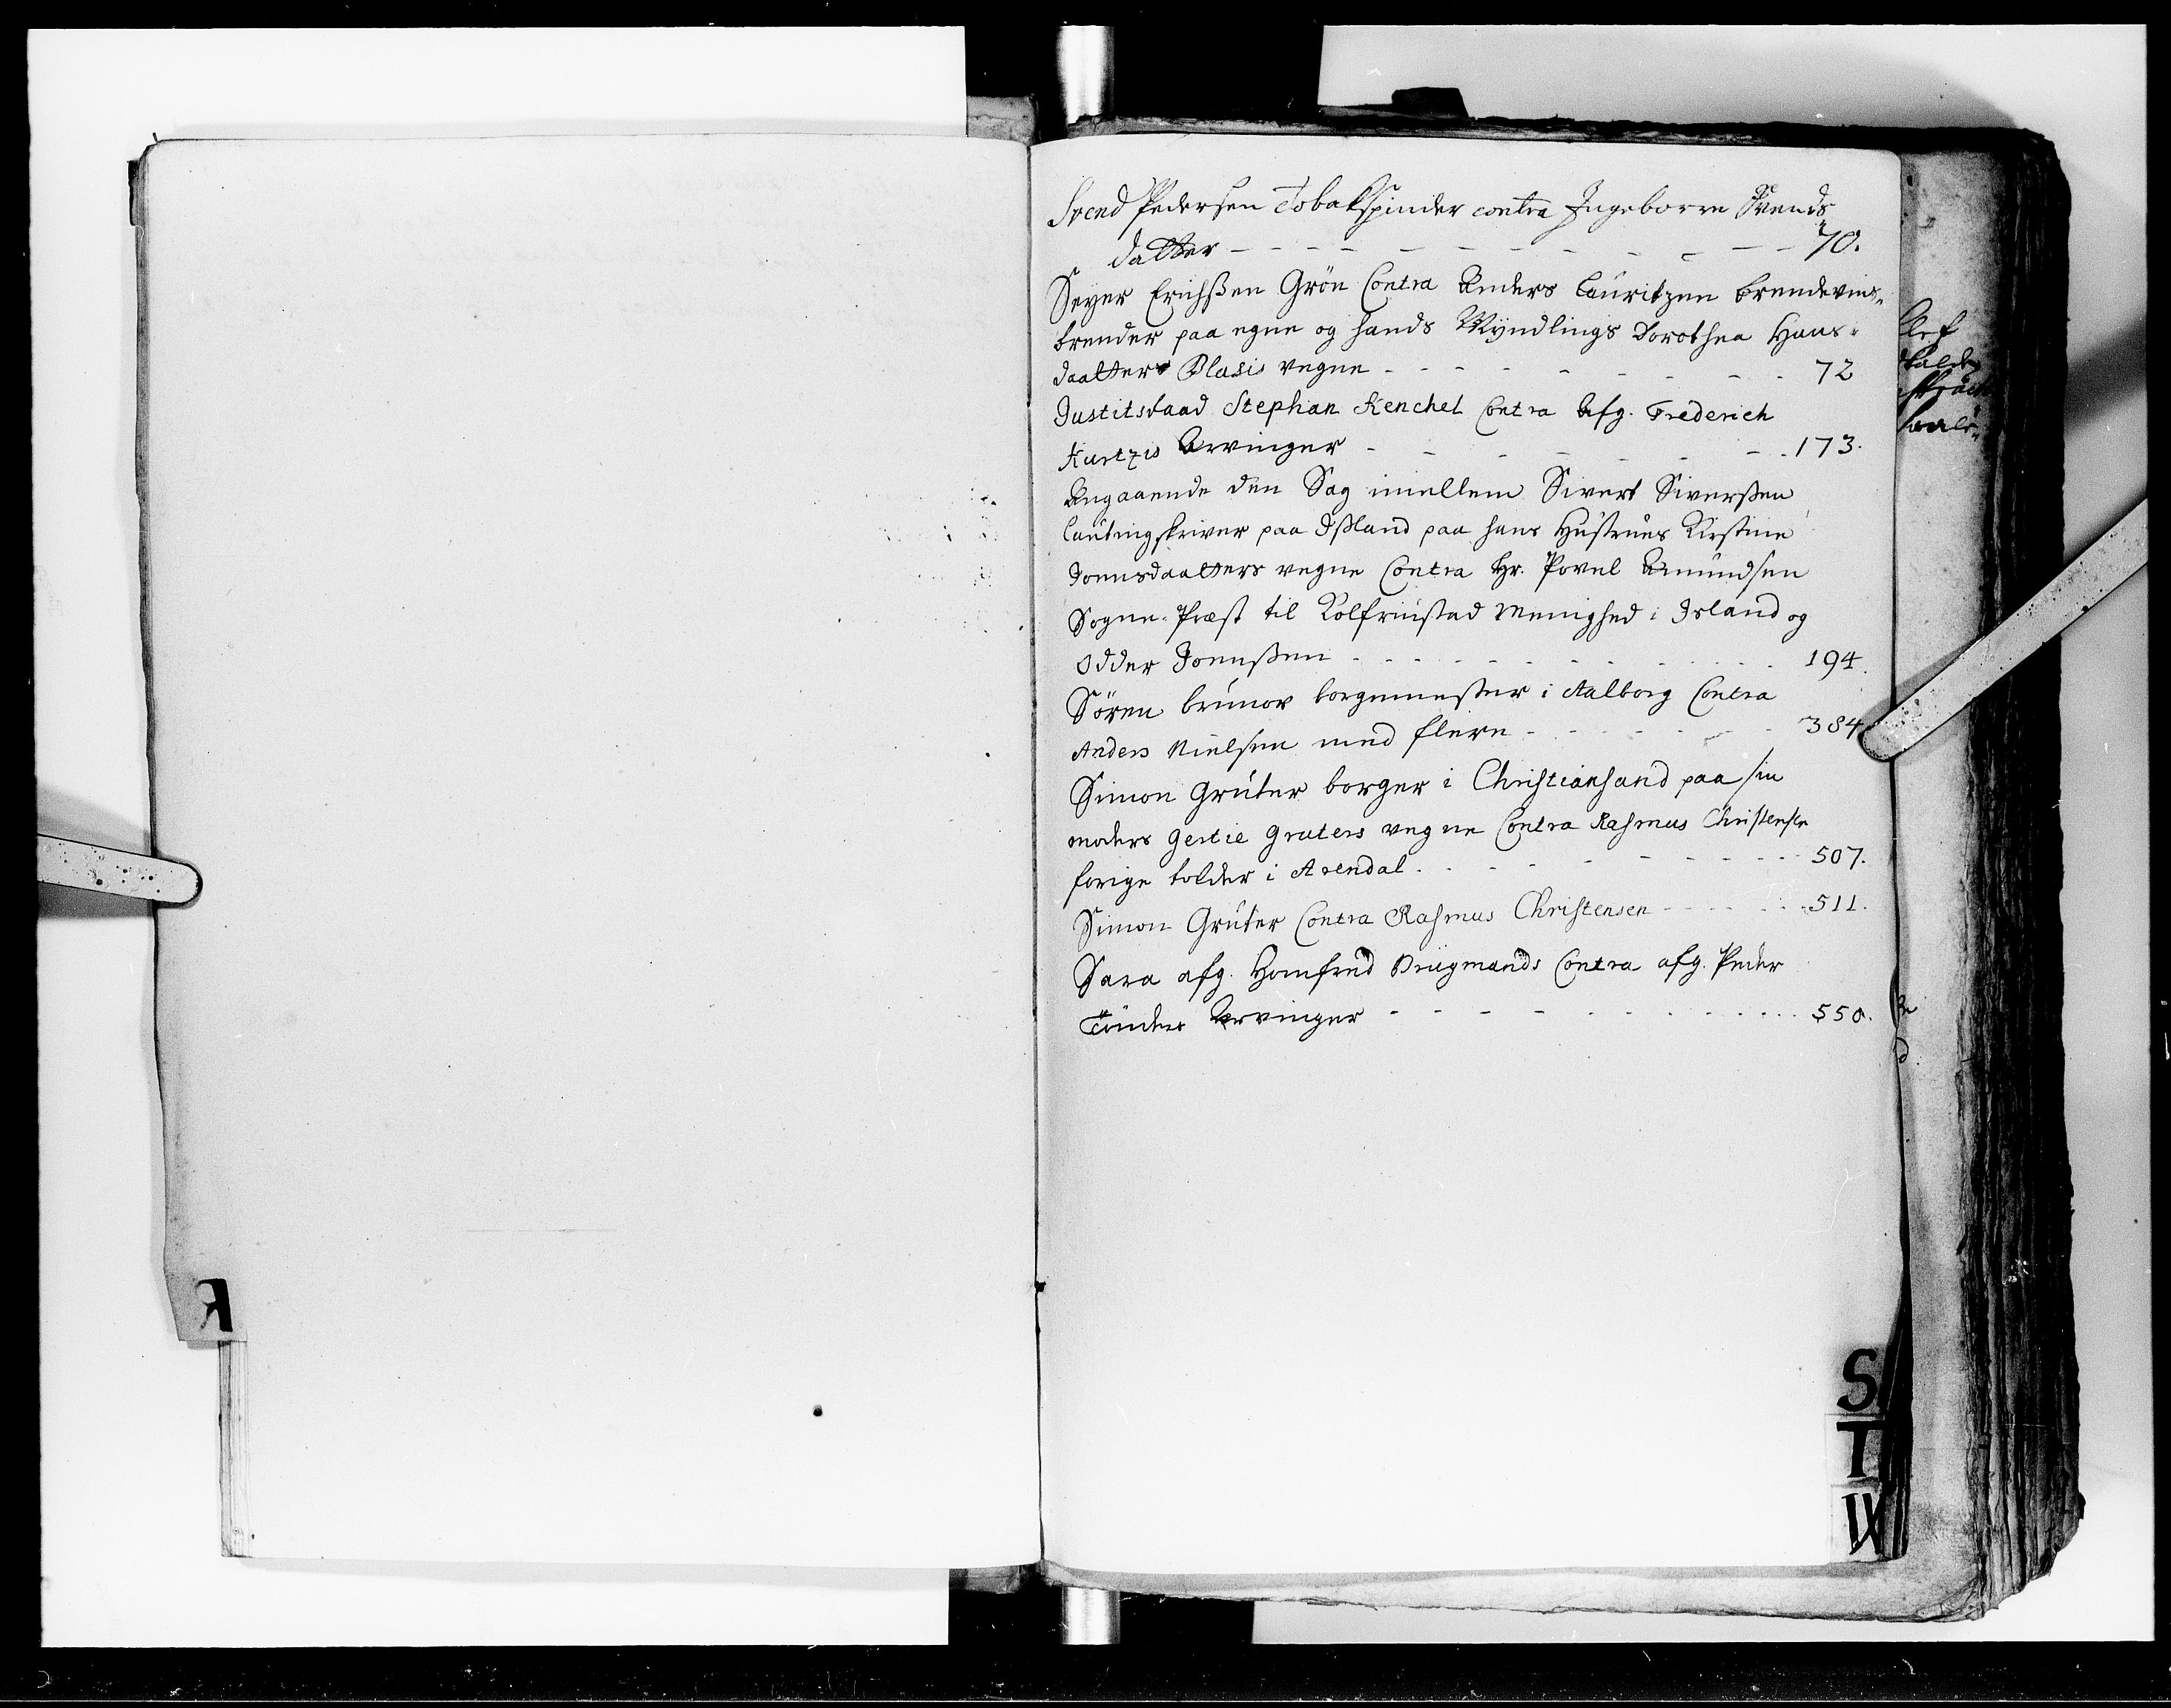 Svend Pedersen Tobakspinder contra Ingeborre Svends
datter - - - - - - - - - 70.
Seyer Erichßen Grön Contra Anders Lauritzen brendevins„
brender paa egne og hands Myndlings Dorothea Hans-
daatters Blasis vegne - - - - - - - - 72
Justitsraad Stephan Kenchel Contra Afg. Frederich
Kurtzis Arvinger - - - - - - - 173.
Angaaende den Sag imellem Sivert Siverßen
Lautingskriver paa Ißland paa hans Hustrues Kirstine
Jonnsdaatters vegne Contra Hr. Povel Amundsen
Sogne-Præst til Kolfrinstad Menighed i Island og
Odder Jonnßen - - - - - - - - 194.
Sören brunov borgemester i Aalborg Contra
Anders Nielsen med flere - - - - - - 384
Simon Grúter borger i Christiansand paa sin
moders Gertie Gruters vegne Contra Rasmus Christensen
forige tolder i Arendal. - - - - - - - 507.
Simon Grúter Contra Rasmus Christensen - - - - - 511.
Sara afg. Homfred Brügmands Contra afg. Peder
Tönder Arvinger - - - - - - - - 550.
R
S
T
W